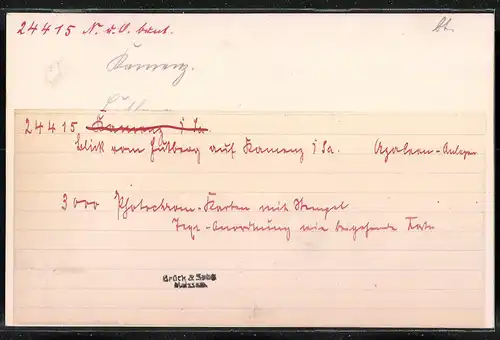 24415 N. v. O. bunt.
Kamenz.
24415 Kamenz i Sa.
Blick vom Hutberg auf Kamenz i Sa. Azaleen-Anlagen
3000 Photochrom-Karten mit Stempel
-Anordnung wie beigehende Karte
Brück & Sohn
Meissen